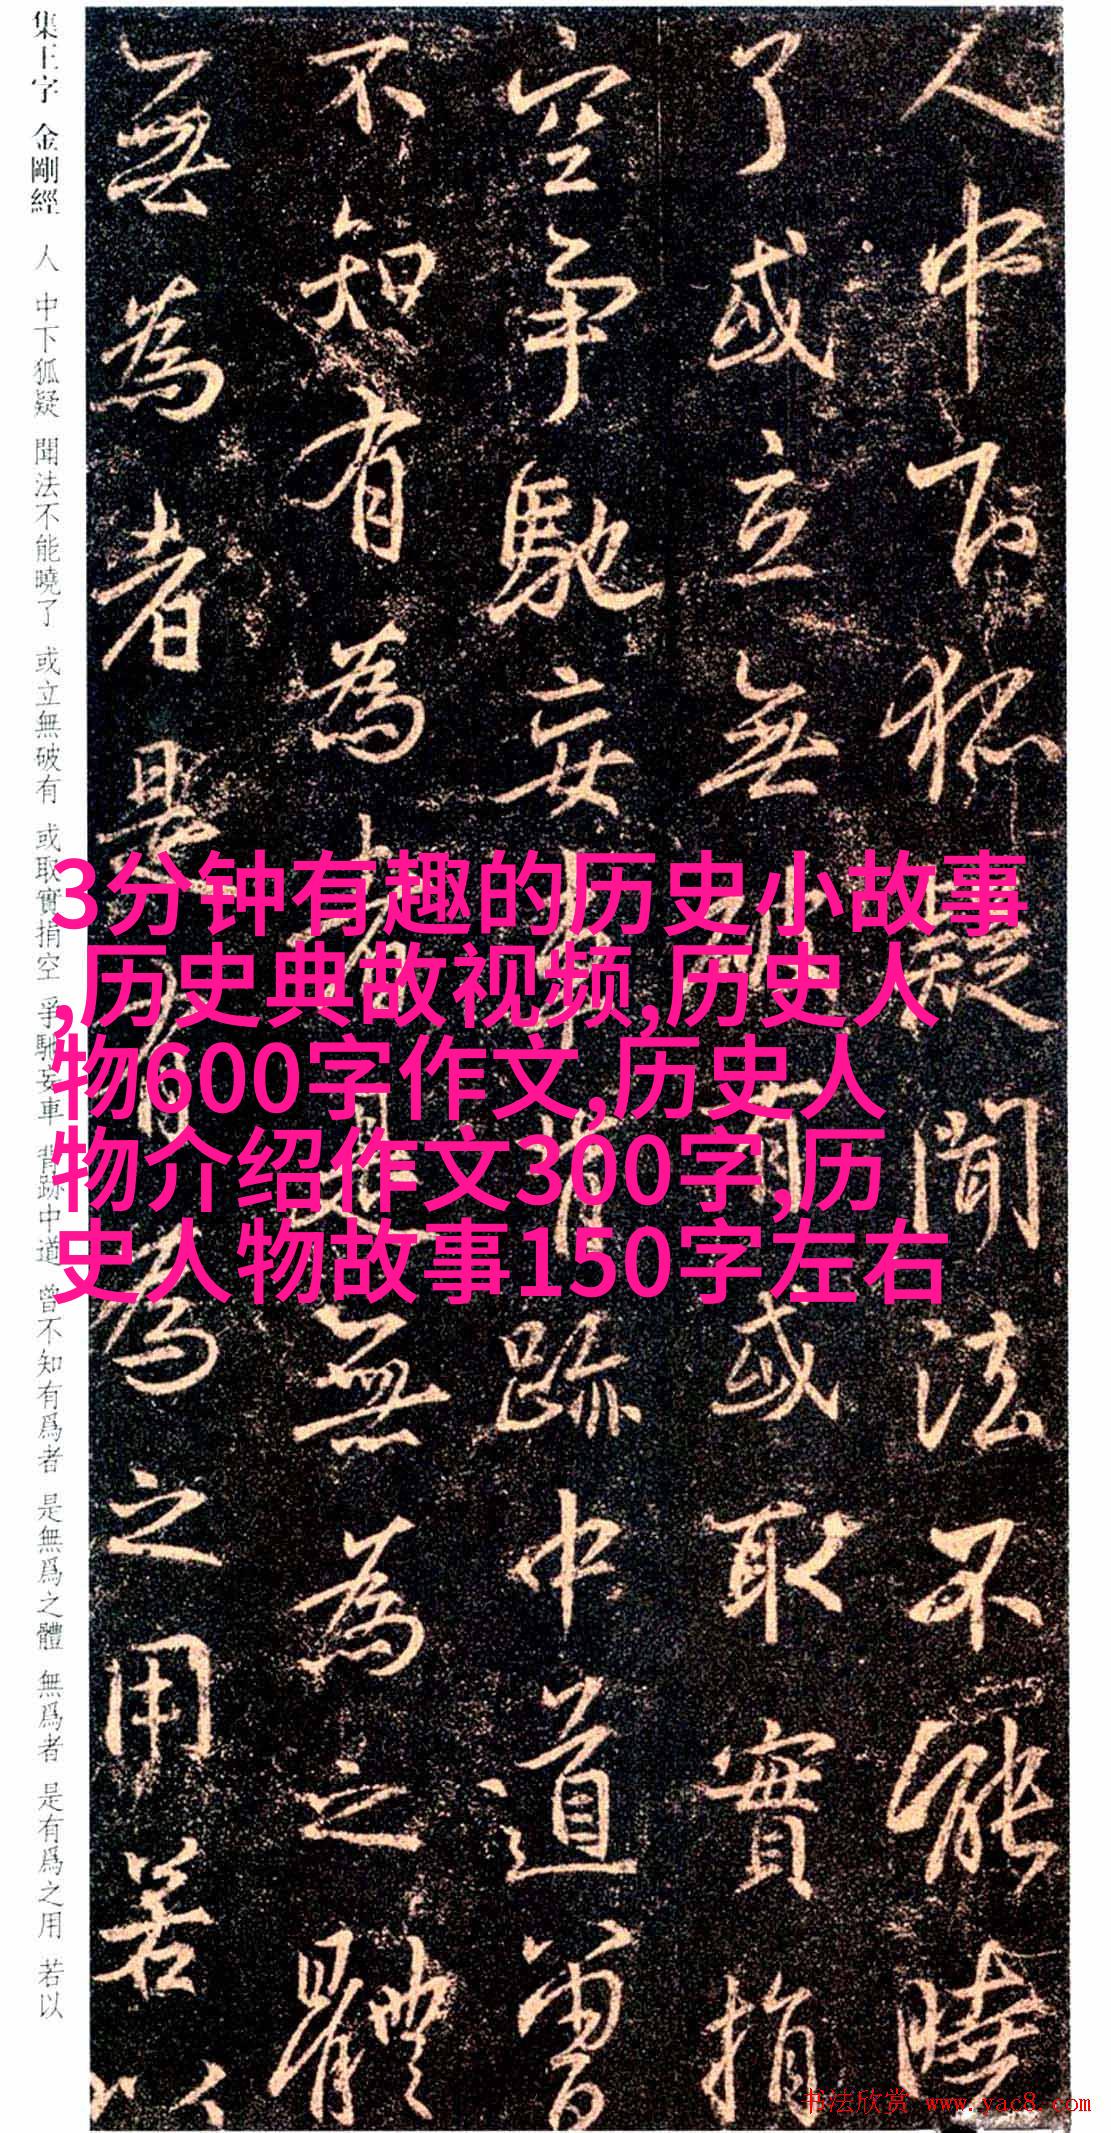 人中下狐疑聞法不能曉
了或立無破有或取實捐
空爭馳妄車背跡中道曾
不知有為者是無為之體
無為者是有為之用若以
集王字 金剛經 人 中下狐疑 聞法不能曉了 或立無破有 或取實捐空 爭馳妄車 背跡中道 曾不知有爲者 是無爲之體 無爲者 是有爲之用 若以
3分钟有趣的历史小故事
,历史典故视频,历史人
物600字作文,历史人
物介绍作文300字,历
史人物故事150字左右
书法欣赏 www.yac8.com